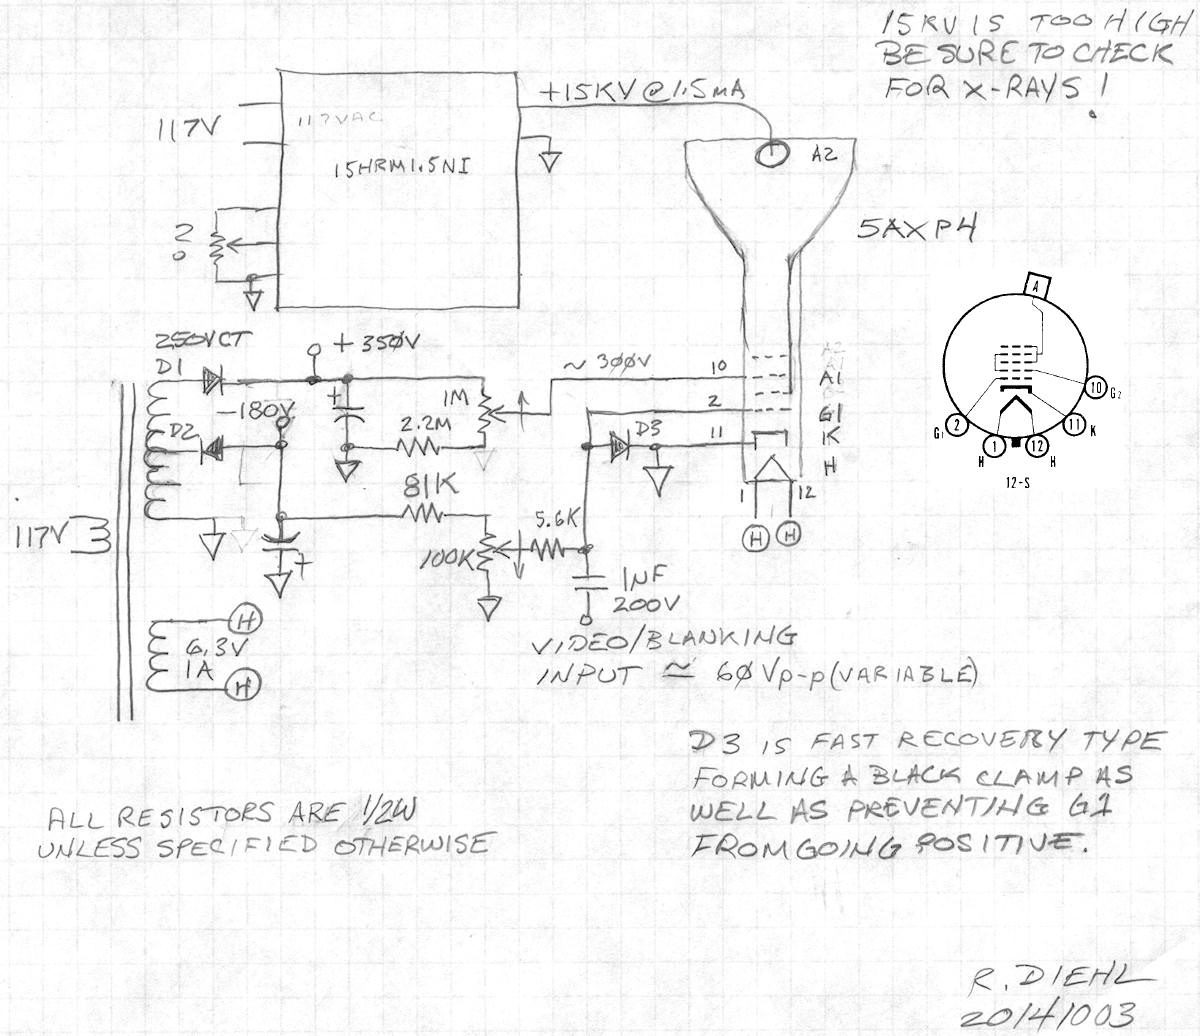 15KV IS TOO HIGH
BE SURE TO CHECK
FOR X-RAYS!
+15KV @ 1.5mA
117V
117VAC
15HRM1.5NI
A2
5AXP4
A
250VCT
D1
+350V
~300V
10
A1
1M
-180V
2
G1
D2
2.2M
D3
11
K
H
10 G2
2
G1
11
K
1
12
H
H
12-S
81K
1
12
117V
5.6K
100K
H
H
1NF
200V
H
6.3V
1A
H
VIDEO/BLANKING
INPUT ≃ 60Vp-p (VARIABLE)
D3 IS FAST RECOVERY TYPE
FORMING A BLACK CLAMP AS
WELL AS PREVENTING G1
FROM GOING POSITIVE.
ALL RESISTORS ARE 1/2W
UNLESS SPECIFIED OTHERWISE
R. DIEHL
20141003